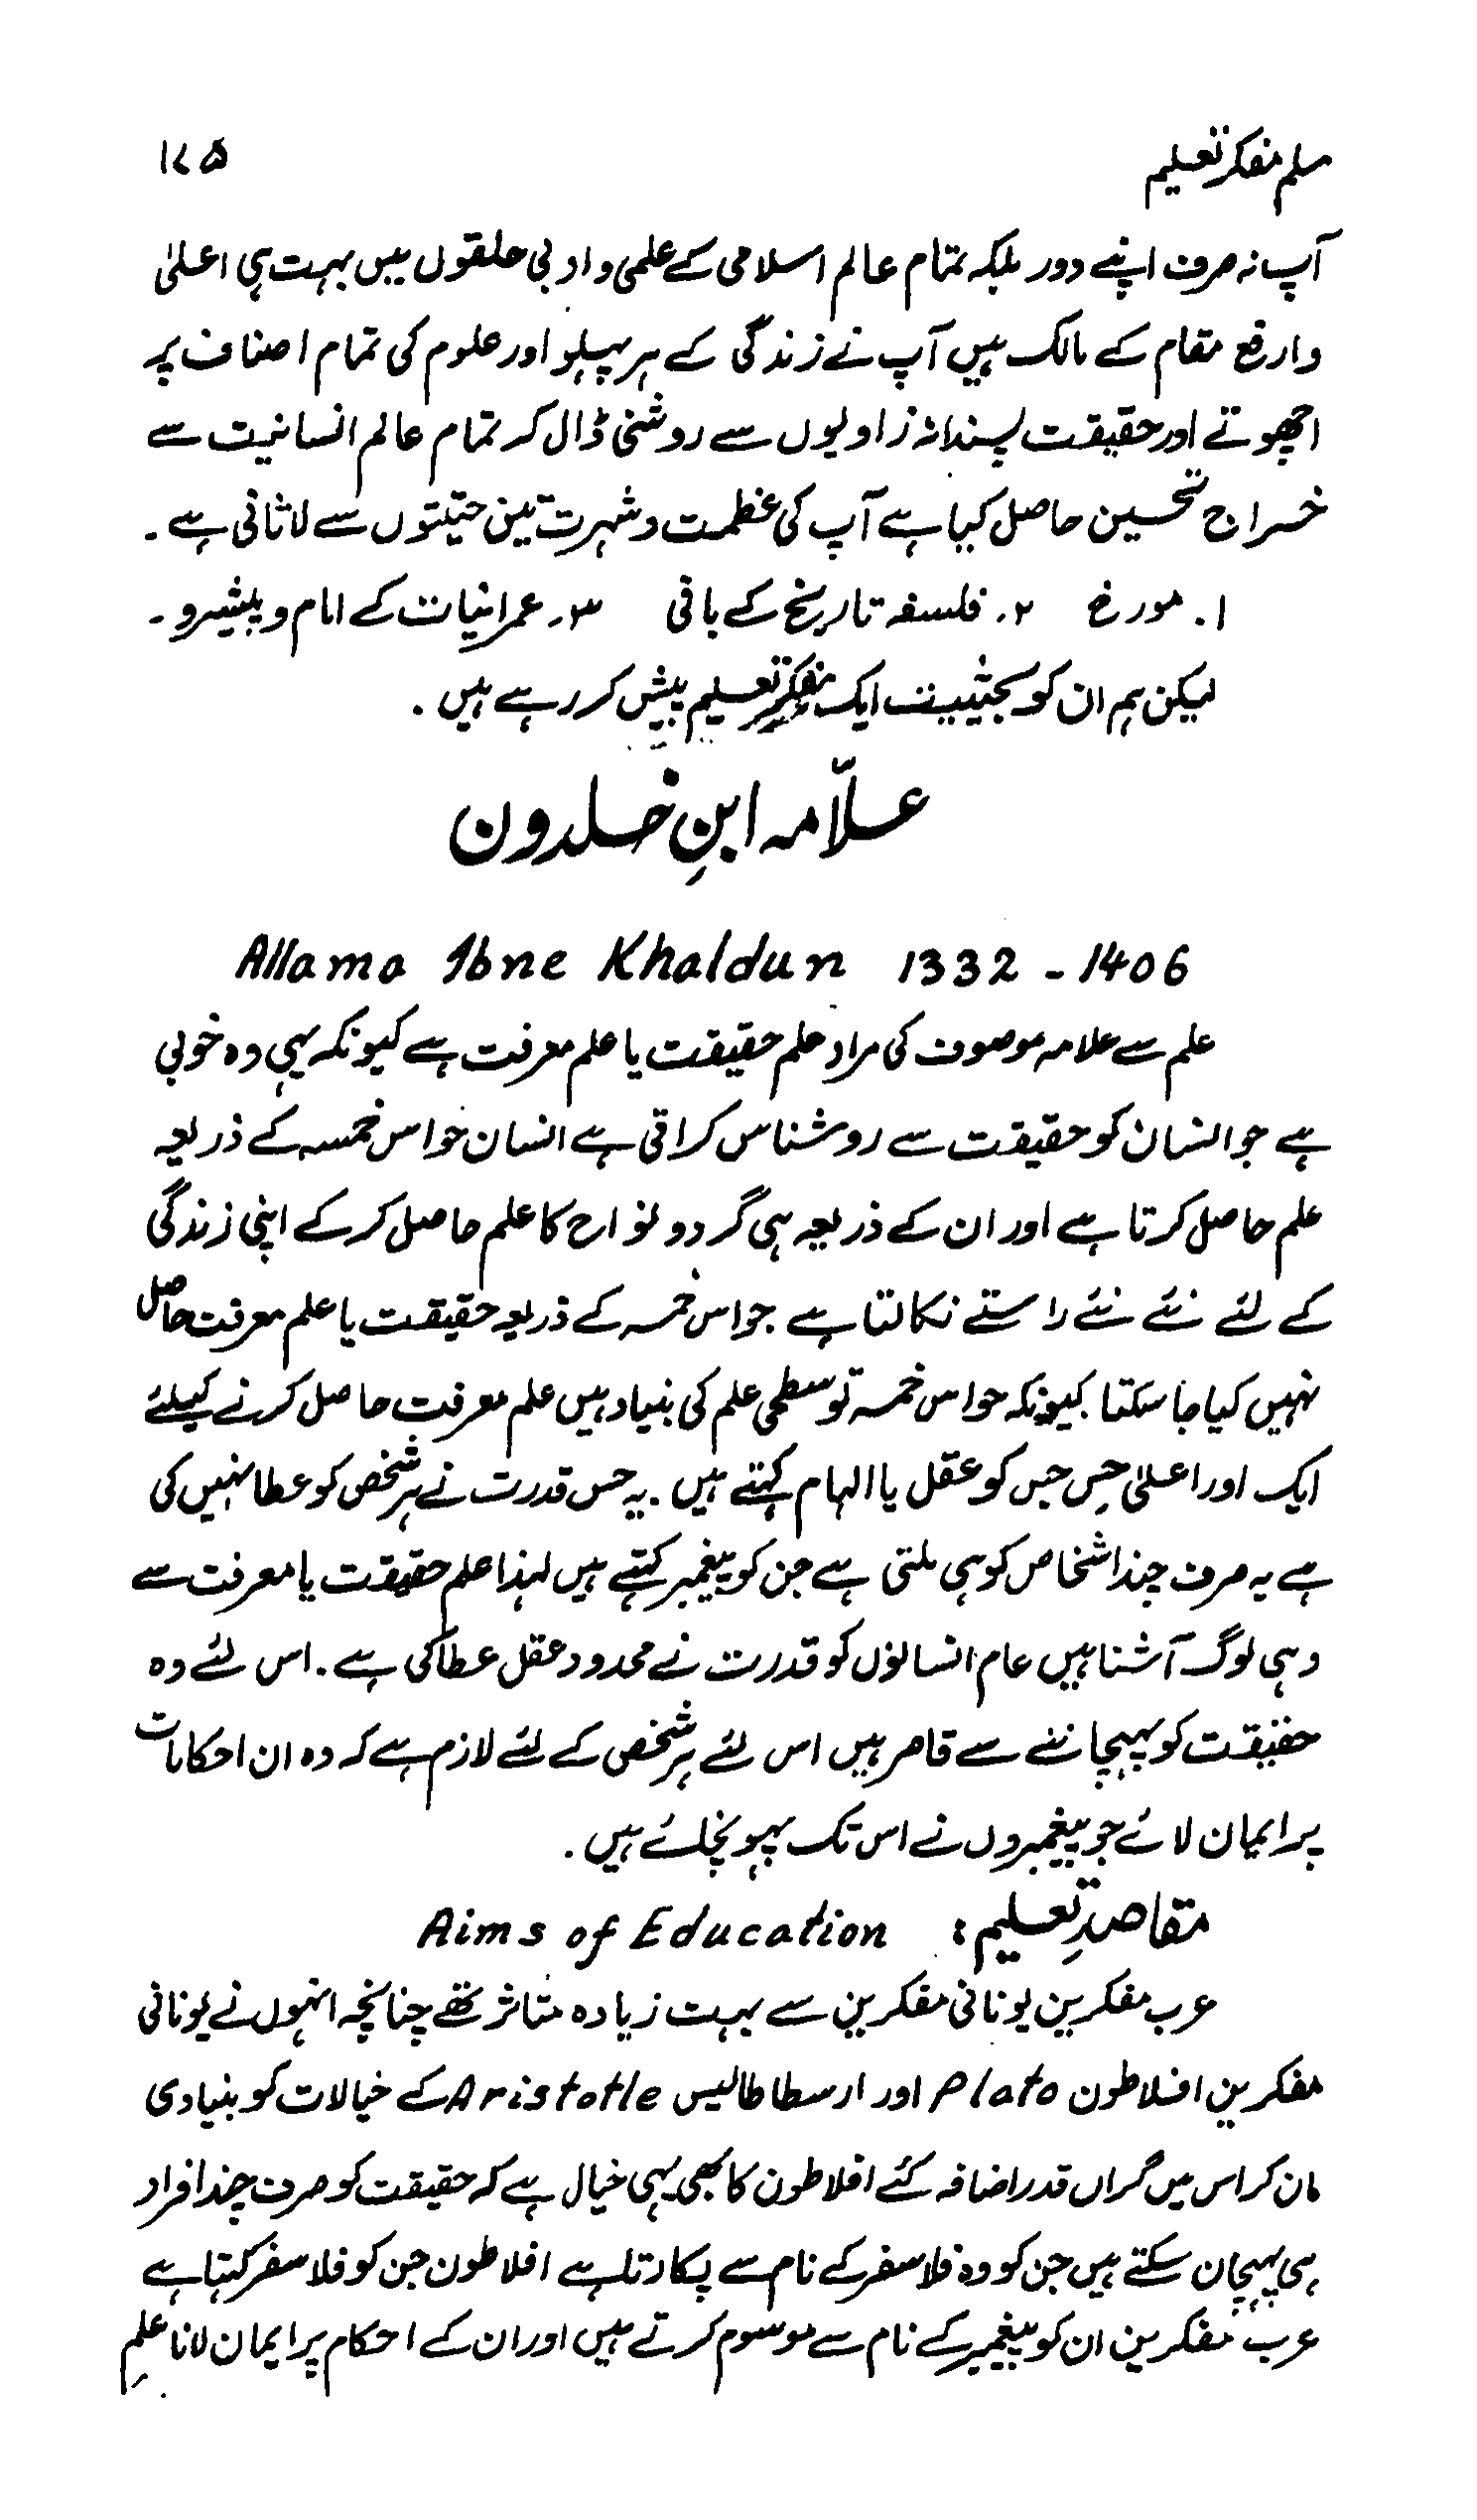 مسلم مفکر تعلیم ۱۷۵
آپ نہ صرف اپنے دور بلکہ تمام عالم اسلامی کے علمی و ادبی حلقوں میں بہت ہی اعلیٰ
وارفع مقام کے مالک ہیں آپ نے زندگی کے ہر پہلو اور علوم کی تمام اصناف پر
اچھوتے اور حقیقت پسندانہ زاویوں سے روشنی ڈال کر تمام عالم انسانیت سے
خراج تحسین حاصل کیا ہے آپ کی عظمت و شہرت تین حیثیتوں سے لاثانی ہے ۔
۱. مورخ ۲. فلسفہ تاریخ کے بانی ۳. عمرانیات کے امام و پیشرو ۔
لیکن ہم ان کو بحیثیت ایک مفکرِ تعلیم پیش کر رہے ہیں ۔
علّامہ ابنِ خلدون
Allama Ibne Khaldun 1332 - 1406
علم سے علامہ موصوف کی مراد علم حقیقت یا علم معرفت ہے کیونکہ یہی وہ خوبی
ہے جو انسان کو حقیقت سے روشناس کراتی ہے انسان حواس خمسہ کے ذریعہ
علم حاصل کرتا ہے اور ان کے ذریعہ ہی گرد و نواح کا علم حاصل کر کے اپنی زندگی
کے لئے نئے نئے راستے نکالتا ہے حواس خمسہ کے ذریعہ حقیقت یا علم معرفت حاصل
نہیں کیا جا سکتا کیونکہ حواس خمسہ تو سطحی علم کی بنیاد ہیں علم معرفت حاصل کرنے کیلئے
ایک اور اعلیٰ حِس جس کو عقل یا الہام کہتے ہیں ۔ یہ حس قدرت نے ہر شخص کو عطا نہیں کی
ہے یہ صرف چند اشخاص کو ہی ملتی ہے جن کو پیغمبر کہتے ہیں لہذا علم حقیقت یا معرفت سے
وہی لوگ آشنا ہیں عام انسانوں کو قدرت نے محدود عقل عطا کی ہے ۔ اس لئے وہ
حقیقت کو پہچاننے سے قاصر ہیں اس لئے ہر شخص کے لئے لازم ہے کہ وہ ان احکامات
پر ایمان لائے جو پیغمبروں نے اس تک پہونچائے ہیں ۔
مقاصدِ تعلیم : Aims of Education
عرب مفکرین یونانی مفکرین سے بہت زیادہ متاثر تھے چنانچہ انہوں نے یونانی
مفکرین افلاطون Plato اور ارسطاطالیس Aristotle کے خیالات کو بنیادی
مان کر اس میں گراں قدر اضافہ کئے افلاطون کا بھی یہی خیال ہے کہ حقیقت کو صرف چند افراد
ہی پہچان سکتے ہیں جن کو وہ فلاسفر کے نام سے پکارتا ہے افلاطون جن کو فلاسفر کہتا ہے
عرب مفکرین ان کو پیغمبر کے نام سے موسوم کرتے ہیں اور ان کے احکام پر ایمان لانا علمِ